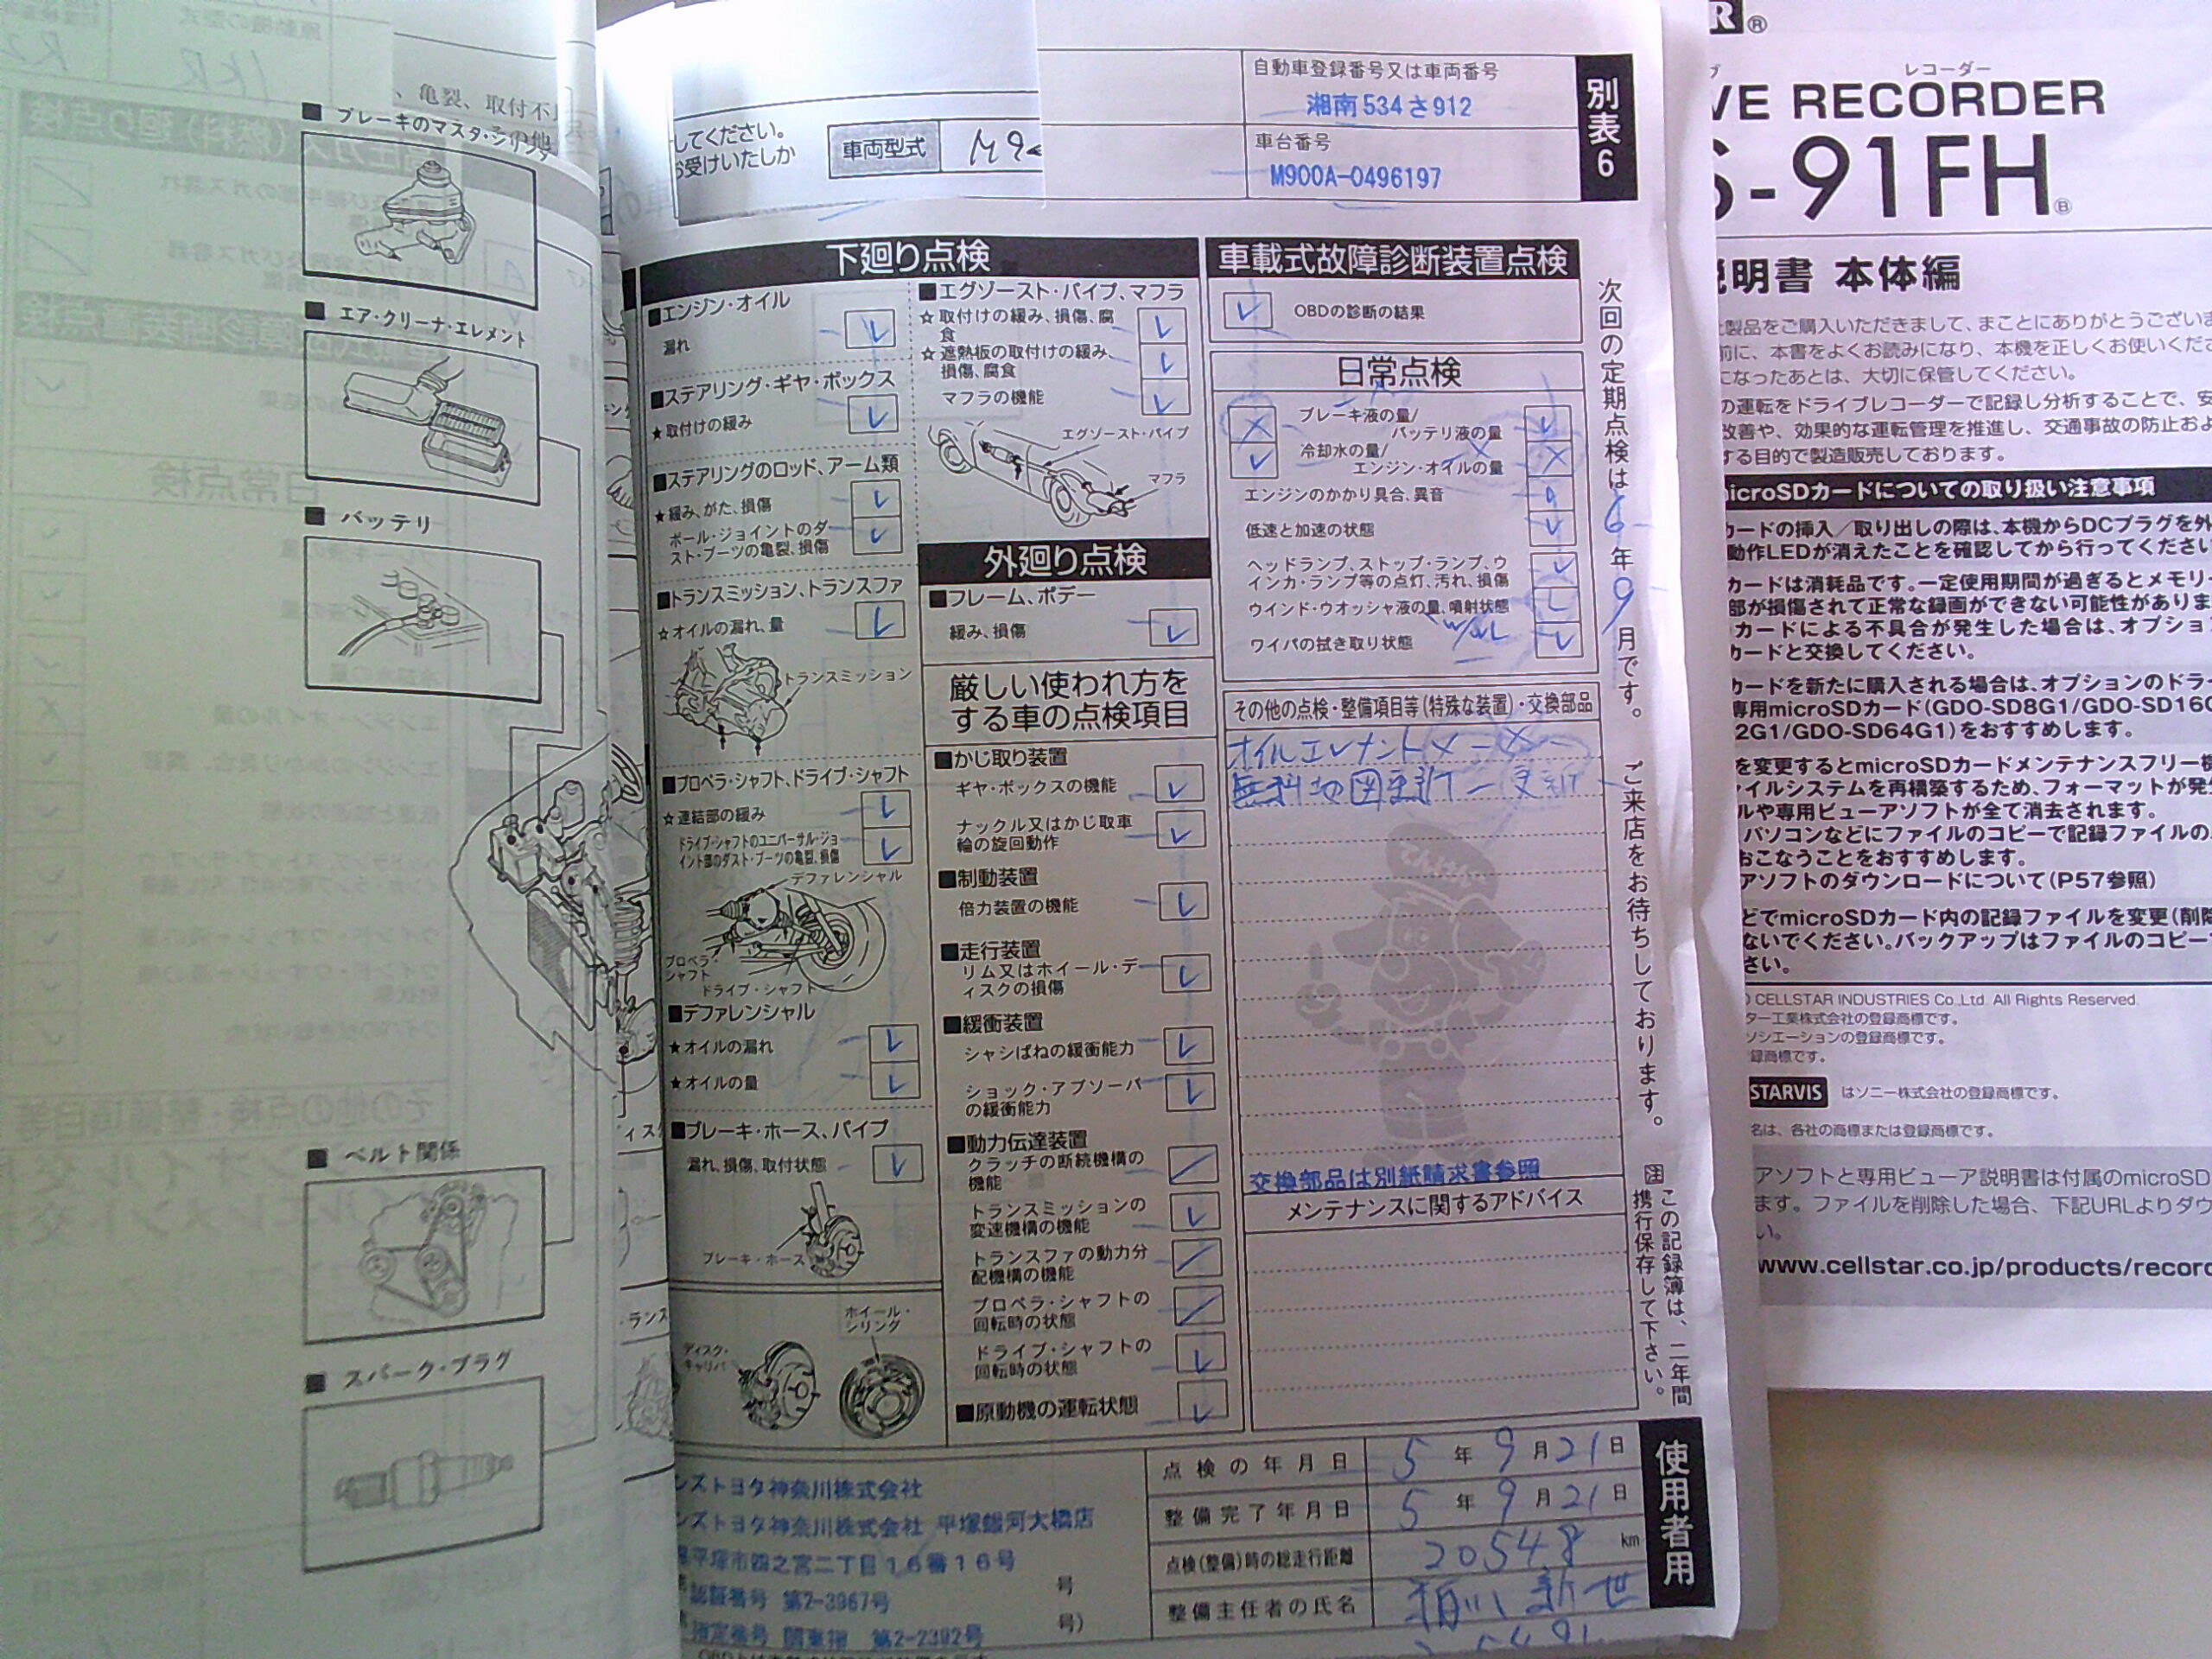 、亀裂、取付不
■ ブレーキのマスタ・シリンダ
■ エア・クリーナ・エレメント
■ バッテリ
■ ベルト関係
■ スパーク・プラグ
してください。
お受けいたしか
車両型式
自動車登録番号又は車両番号
湘南534さ912
車台番号
M900A-0496197
別表6
下廻り点検
■エンジン・オイル
漏れ
■ステアリング・ギヤ・ボックス
★取付けの緩み
■ステアリングのロッド、アーム類
★緩み、がた、損傷
ボール・ジョイントのダ
スト・ブーツの亀裂、損傷
■トランスミッション、トランスファ
☆オイルの漏れ、量
トランスミッション
■プロペラ・シャフト、ドライブ・シャフト
☆連結部の緩み
ドライブ・シャフトのユニバーサル・ジョ
イント部のダスト・ブーツの亀裂、損傷
デファレンシャル
プロペラ・
シャフト
ドライブ・シャフト
■デファレンシャル
★オイルの漏れ
★オイルの量
■ブレーキ・ホース、パイプ
漏れ、損傷、取付状態
ブレーキ・ホース
ディスク・
キャリパ
ホイール・
シリンダ
■エグゾースト・パイプ、マフラ
☆取付けの緩み、損傷、腐
食
☆遮熱板の取付けの緩み、
損傷、腐食
マフラの機能
エグゾースト・パイプ
マフラ
外廻り点検
■フレーム、ボデー
緩み、損傷
厳しい使われ方を
する車の点検項目
■かじ取り装置
ギヤ・ボックスの機能
ナックル又はかじ取車
輪の旋回動作
■制動装置
倍力装置の機能
■走行装置
リム又はホイール・デ
ィスクの損傷
■緩衝装置
シャシばねの緩衝能力
ショック・アブソーバ
の緩衝能力
■動力伝達装置
クラッチの断続機構の
機能
トランスミッションの
変速機構の機能
トランスファの動力分
配機構の機能
プロペラ・シャフトの
回転時の状態
ドライブ・シャフトの
回転時の状態
■原動機の運転状態
車載式故障診断装置点検
OBDの診断の結果
日常点検
ブレーキ液の量/
バッテリ液の量
冷却水の量/
エンジン・オイルの量
エンジンのかかり具合、異音
低速と加速の状態
ヘッドランプ、ストップ・ランプ、ウ
インカ・ランプ等の点灯、汚れ、損傷
ウインド・ウオッシャ液の量、噴射状態
ワイパの拭き取り状態
その他の点検・整備項目等(特殊な装置)・交換部品
無料地図更新
てんけんくん
交換部品は別紙請求書参照
メンテナンスに関するアドバイス
次回の定期点検は6年9月です。ご来店をお待ちしております。
注 この記録簿は、二年間
携行保存して下さい。
使用者用
点検の年月日 5年9月21日
整備完了年月日 5年9月21日
点検(整備)時の総走行距離 20548km
整備主任者の氏名
ズトヨタ神奈川株式会社
ズトヨタ神奈川株式会社 平塚銀河大橋店
平塚市四之宮二丁目16番16号
認証番号 第2-3967号
指定番号 関東指 第2-2392号
号
号)
R®
レコーダー
VE RECORDER
-91FH
説明書 本体編
製品をご購入いただきまして、まことにありがとうござい
前に、本書をよくお読みになり、本機を正しくお使いくだ
になったあとは、大切に保管してください。
の運転をドライブレコーダーで記録し分析することで、安
改善や、効果的な運転管理を推進し、交通事故の防止およ
する目的で製造販売しております。
microSDカードについての取り扱い注意事項
カードの挿入/取り出しの際は、本機からDCプラグを外
動作LEDが消えたことを確認してから行ってください
カードは消耗品です。一定使用期間が過ぎるとメモリ
部が損傷されて正常な録画ができない可能性がありま
カードによる不具合が発生した場合は、オプション
カードと交換してください。
カードを新たに購入される場合は、オプションのドラ
専用microSDカード(GDO-SD8G1/GDO-SD16G
2G1/GDO-SD64G1)をおすすめします。
を変更するとmicroSDカードメンテナンスフリー機
ァイルシステムを再構築するため、フォーマットが発生
ルや専用ビューアソフトが全て消去されます。
パソコンなどにファイルのコピーで記録ファイルの
おこなうことをおすすめします。
アソフトのダウンロードについて(P57参照)
どでmicroSDカード内の記録ファイルを変更(削除
ないでください。バックアップはファイルのコピー
さい。
CELLSTAR INDUSTRIES Co.,Ltd. All Rights Reserved.
ター工業株式会社の登録商標です。
ソシエーションの登録商標です。
録商標です。
STARVIS はソニー株式会社の登録商標です。
名は、各社の商標または登録商標です。
アソフトと専用ビューア説明書は付属のmicroSD
ます。ファイルを削除した場合、下記URLよりダウ
い。
www.cellstar.co.jp/products/recor